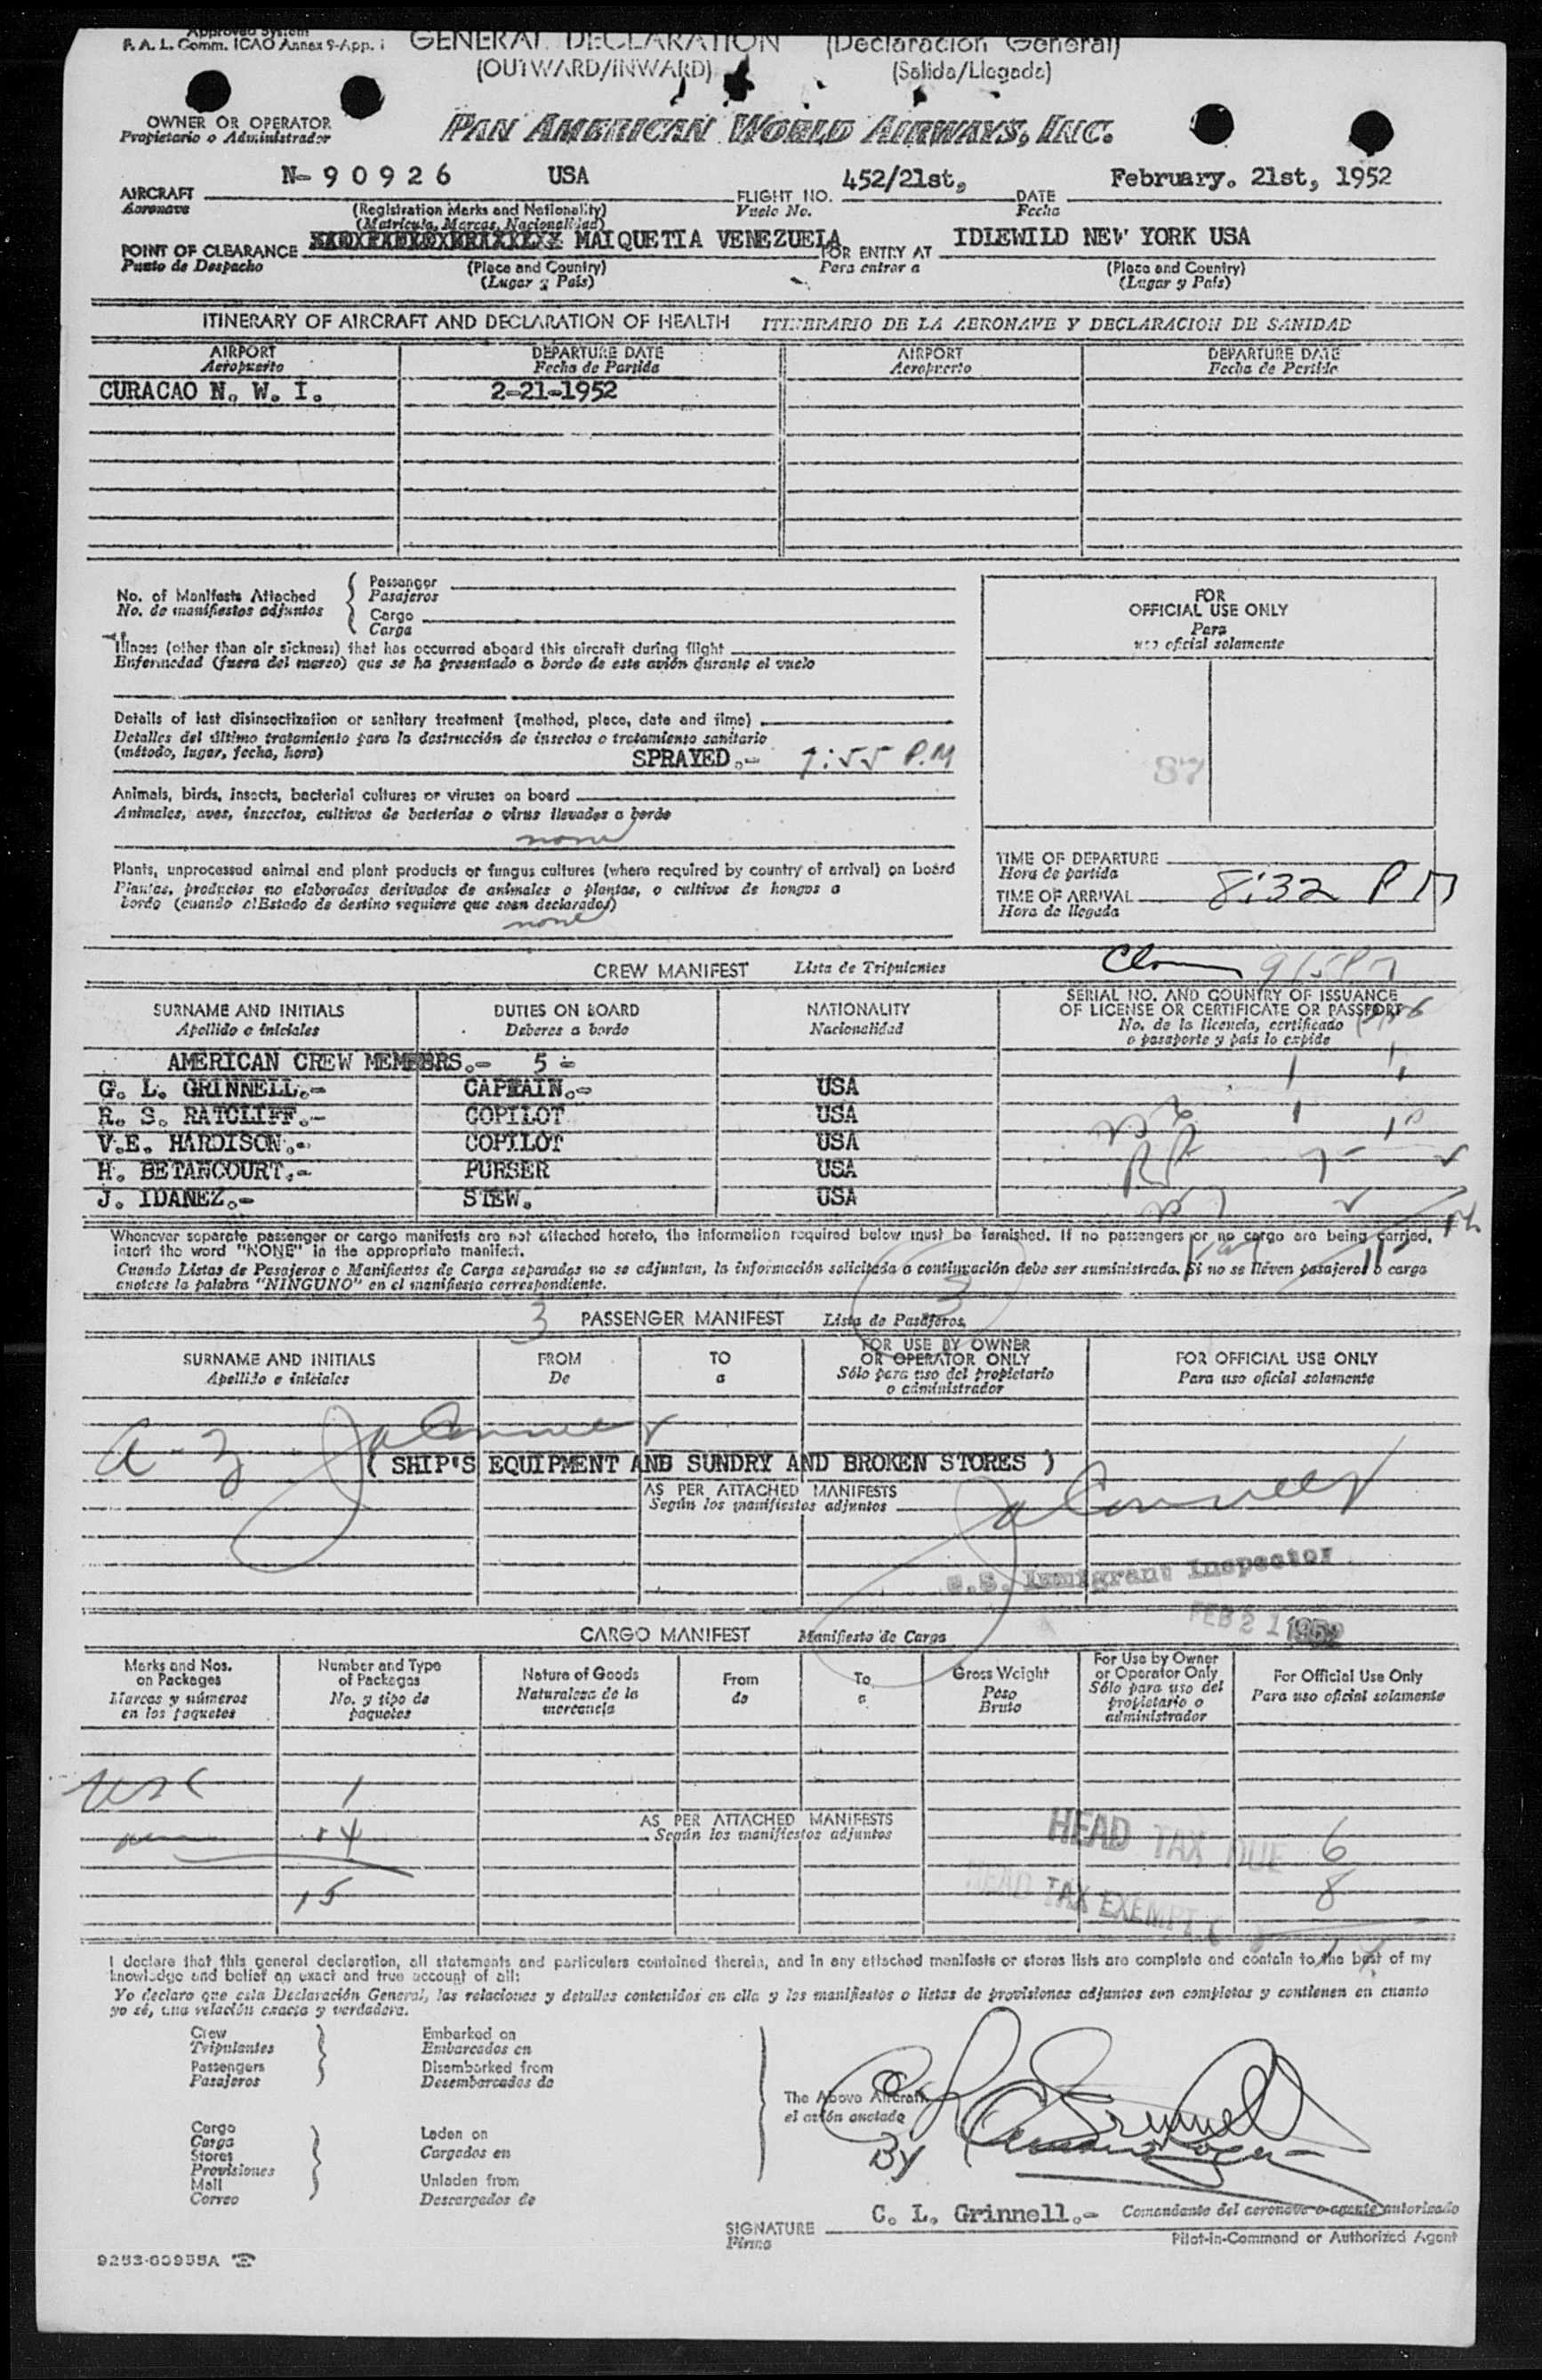 Approved System
F. A. L. Comm. ICAO Annex 9-App. 1
GENERAL DECLARATION (Declaración General)
(OUTWARD/INWARD) (Salida/Llegada)
OWNER OR OPERATOR
Propietario o Administrador
PAN AMERICAN WORLD AIRWAYS, INC.
AIRCRAFT N-90926 USA FLIGHT NO. 452/21st, DATE February. 21st, 1952
Aeronave (Registration Marks and Nationality) Vuelo No. Fecha
(Matricula, Marcas, Nacionalidad)
POINT OF CLEARANCE MAIQUETIA VENEZUELA FOR ENTRY AT IDLEWILD NEW YORK USA
Punto de Despacho (Place and Country) Para entrar a (Place and Country)
(Lugar y País) (Lugar y País)
ITINERARY OF AIRCRAFT AND DECLARATION OF HEALTH ITINERARIO DE LA AERONAVE Y DECLARACION DE SANIDAD
AIRPORT DEPARTURE DATE AIRPORT DEPARTURE DATE
Aeropuerto Fecha de Partida Aeropuerto Fecha de Partida
CURACAO N. W. I. 2-21-1952
No. of Manifests Attached Passenger
No. de manifiestos adjuntos Pasajeros
Cargo
Carga
FOR
OFFICIAL USE ONLY
Para
uso oficial solamente
Illness (other than air sickness) that has occurred aboard this aircraft during flight
Enfermedad (fuera del mareo) que se ha presentado a bordo de este avión durante el vuelo
Details of last disinsectization or sanitary treatment (method, place, date and time)
Detalles del último tratamiento para la destrucción de insectos o tratamiento sanitario
(método, lugar, fecha, hora) SPRAYED.- 7:55 P.M
87
Animals, birds, insects, bacterial cultures or viruses on board
Animales, aves, insectos, cultivos de bacterias o virus llevados a bordo
none
Plants, unprocessed animal and plant products or fungus cultures (where required by country of arrival) on board
Plantas, productos no elaborados derivados de animales o plantas, o cultivos de hongos a
bordo (cuando el Estado de destino requiere que sean declarados)
none
TIME OF DEPARTURE
Hora de partida
TIME OF ARRIVAL 8:32 P M
Hora de llegada
CREW MANIFEST Lista de Tripulantes
SURNAME AND INITIALS DUTIES ON BOARD NATIONALITY SERIAL NO. AND COUNTRY OF ISSUANCE
Apellido e iniciales Deberes a bordo Nacionalidad OF LICENSE OR CERTIFICATE OR PASSPORT
No. de la licencia, certificado
o pasaporte y país lo expide
AMERICAN CREW MEMBERS.- 5 -
G. L. GRINNELL.- CAPTAIN.- USA
R. S. RATCLIFF.- COPILOT USA
V.E. HARDISON.- COPILOT USA
H. BETANCOURT.- PURSER USA
J. IDANEZ.- STEW. USA
Whenever separate passenger or cargo manifests are not attached hereto, the information required below must be furnished. If no passengers or no cargo are being carried,
insert the word "NONE" in the appropriate manifest.
Cuando Listas de Pasajeros o Manifiestos de Carga separados no se adjuntan, la información solicitada a continuación debe ser suministrada. Si no se lleven pasajeros o carga
anotese la palabra "NINGUNO" en el manifiesto correspondiente.
3
3 PASSENGER MANIFEST Lista de Pasajeros
SURNAME AND INITIALS FROM TO FOR USE BY OWNER FOR OFFICIAL USE ONLY
Apellido e iniciales De a OR OPERATOR ONLY Para uso oficial solamente
Sólo para uso del propietario
o administrador
( SHIP'S EQUIPMENT AND SUNDRY AND BROKEN STORES )
AS PER ATTACHED MANIFESTS
Según los manifiestos adjuntos
U.S. Immigrant Inspector
FEB 21 1952
CARGO MANIFEST Manifiesto de Carga
Marks and Nos. Number and Type Nature of Goods From To Gross Weight For Use by Owner For Official Use Only
on Packages of Packages Naturaleza de la de a Peso or Operator Only Para uso oficial solamente
Marcas y números No. y tipo de mercancía Bruto Sólo para uso del
en los paquetes paquetes propietario o
administrador
USC 1
AS PER ATTACHED MANIFESTS
Según los manifiestos adjuntos
14
15
HEAD TAX DUE 6
HEAD TAX EXEMPT 8
I declare that this general declaration, all statements and particulars contained therein, and in any attached manifests or stores lists are complete and contain to the best of my
knowledge and belief an exact and true account of all:
Yo declaro que esta Declaración General, las relaciones y detalles contenidos en ella y los manifiestos o listas de provisiones adjuntos son completos y contienen en cuanto
yo sé, una relación exacta y verdadera.
Crew Embarked on
Tripulantes Embarcados en
Passengers Disembarked from
Pasajeros Desembarcados de
The Above Aircraft
el avión anotado
BY
Cargo Laden on
Carga Cargados en
Stores
Provisiones Unladen from
Mail Descargados de
Correo
SIGNATURE C. L. Grinnell.- Comandante del aeronave o agente autorizado
Firma Pilot-in-Command or Authorized Agent